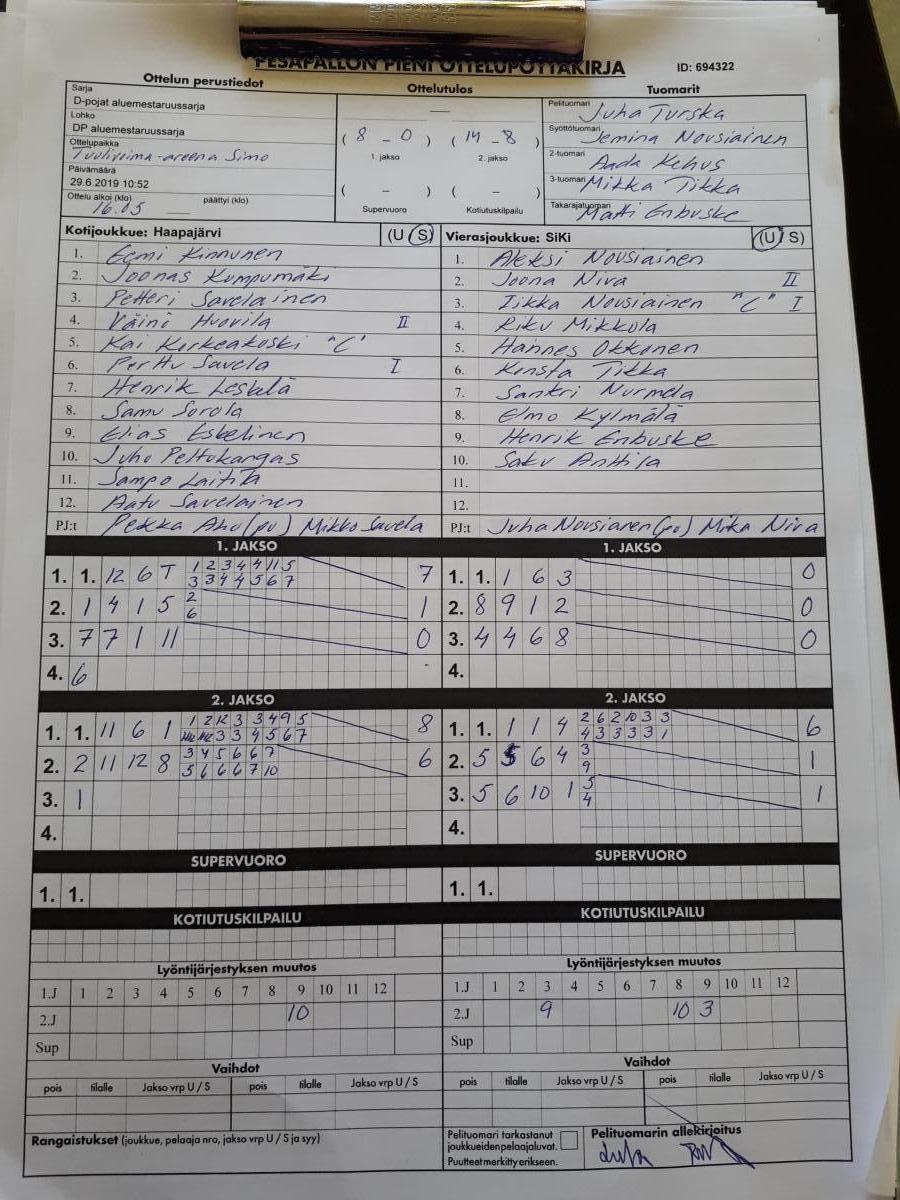 PESÄPALLON PIENI OTTELUPÖYTÄKIRJA
ID: 694322
Ottelun perustiedot
Ottelutulos
Tuomarit
Sarja
D-pojat aluemestaruussarja
Lohko
DP aluemestaruussarja
Ottelupaikka
Tuulivoima-areena Simo
Päivämäärä
29.6.2019 10:52
Ottelu alkoi (klo) päättyi (klo)
16.05
( 8 - 0 ) ( 14 - 8 )
1. jakso 2. jakso
( - ) ( - )
Supervuoro Kotiutuskilpailu
Pelituomari Juha Turska
Syöttötuomari Jemina Nousiainen
2-tuomari Aada Kehus
3-tuomari Mikka Tikka
Takarajatuomari Matti Enbuske
Kotijoukkue: Haapajärvi (U S)
1. Eemi Kinnunen
2. Joonas Kumpumäki
3. Petteri Savelainen
4. Väinö Huovila II
5. Kai Korkeakoski "C"
6. Perttu Savela I
7. Henrik Leskelä
8. Samu Sorola
9. Elias Eskelinen
10. Juho Peltokangas
11. Sampo Laitila
12. Aatu Savelainen
PJ:t Pekka Aho (pv) Mikko Savela
Vierasjoukkue: SiKi (U S)
1. Aleksi Nousiainen
2. Joona Niva II
3. Iikka Nousiainen "C" I
4. Riku Mikkola
5. Hannes Okkonen
6. Konsta Tikka
7. Sankri Nurmela
8. Elmo Kylmälä
9. Henrik Enbuske
10. Saku Anttila
11.
12.
PJ:t Juha Nousianen (pv) Mika Niva
1. JAKSO
1. 1. 12 6 T 1 2 3 4 4 11 5 7
3 3 4 4 5 6 7
2. 1 4 1 5 2 1
6
3. 7 7 1 11 0
4. 6
1. JAKSO
1. 1. 1 6 3 0
2. 8 9 1 2 0
3. 4 4 6 8 0
4.
2. JAKSO
1. 1. 11 6 1 1 2 12 3 3 4 9 5 8
3 3 4 5 6 7
2. 2 11 12 8 3 4 5 6 6 7 6
5 6 6 6 7 10
3. 1
4.
2. JAKSO
1. 1. 1 1 4 2 6 2 10 3 3 6
4 3 3 3 3 1
2. 5 5 6 4 3 1
9
3. 5 6 10 1 5 1
4
4.
SUPERVUORO
1. 1.
SUPERVUORO
1. 1.
KOTIUTUSKILPAILU
KOTIUTUSKILPAILU
Lyöntijärjestyksen muutos
1.J 1 2 3 4 5 6 7 8 9 10 11 12
2.J 10
Sup
Lyöntijärjestyksen muutos
1.J 1 2 3 4 5 6 7 8 9 10 11 12
2.J 9 10 3
Sup
Vaihdot
pois tilalle Jakso vrp U / S pois tilalle Jakso vrp U / S
Vaihdot
pois tilalle Jakso vrp U / S pois tilalle Jakso vrp U / S
Rangaistukset (joukkue, pelaaja nro, jakso vrp U / S ja syy)
Pelituomari tarkastanut
joukkueidenpelaajaluvat.
Puutteetmerkittyerikseen.
Pelituomarin allekirjoitus